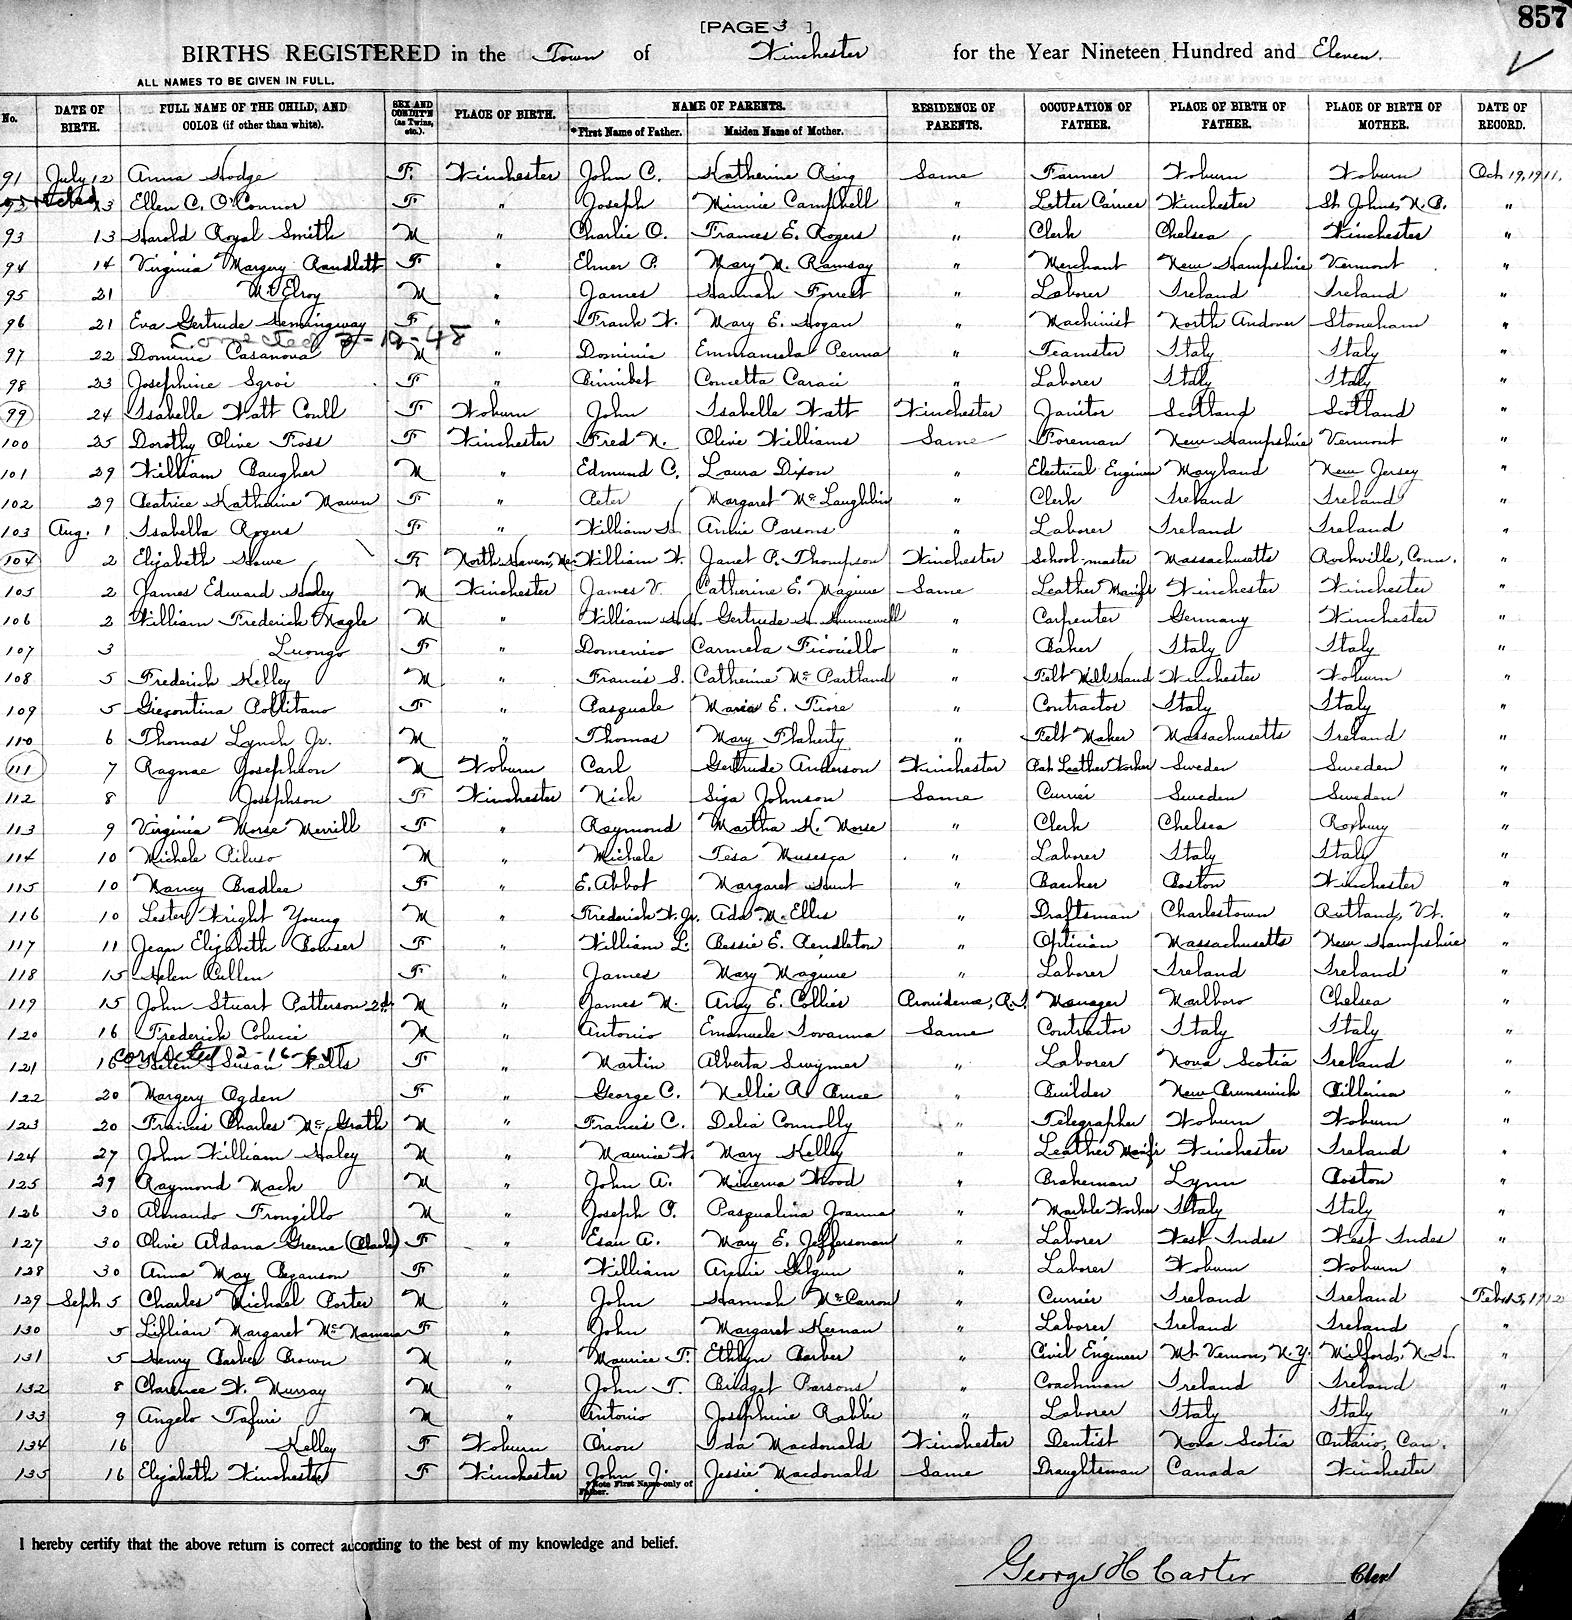 857
[PAGE 3 ]
BIRTHS REGISTERED in the Town of Winchester for the Year Nineteen Hundred and Eleven.
ALL NAMES TO BE GIVEN IN FULL.
No. DATE OF BIRTH. FULL NAME OF THE CHILD, AND COLOR (if other than white). SEX AND CONDIT'N (as Twins, etc.). PLACE OF BIRTH. NAME OF PARENTS. *First Name of Father. Maiden Name of Mother. RESIDENCE OF PARENTS. OCCUPATION OF FATHER. PLACE OF BIRTH OF FATHER. PLACE OF BIRTH OF MOTHER. DATE OF RECORD.
91 July 12 Anna Hodge F. Winchester John C. Katherine Ring Same Farmer Woburn Woburn Oct 19, 1911.
13 Ellen C. O'Connor F " Joseph Minnie Campbell " Letter Carrier Winchester St Johns, N.B. "
93 13 Harold Royal Smith M " Charlie O. Frances E. Rogers " Clerk Chelsea Winchester "
94 14 Virginia Margery Randlett F " Elmer P. Mary M. Ramsay " Merchant New Hampshire Vermont "
95 21 McElroy M " James Hannah Forrest " Laborer Ireland Ireland "
96 21 Eva Gertrude Hemingway F " Frank W. Mary E. Hogan " Machinist North Andover Stoneham "
Corrected 2-12-48
97 22 Dominic Casanova M " Dominic Emmanuela Penna " Teamster Italy Italy "
98 23 Josephine Sgroi F " Concetta Caraci " Laborer Italy Italy "
99 24 Isabelle Watt Coull F Woburn John Isabelle Watt Winchester Janitor Scotland Scotland "
100 25 Dorothy Olive Foss F Winchester Fred N. Olive Williams Same Foreman New Hampshire Vermont "
101 29 William Baugher M " Edmund C. Laura Dixon " Electrical Engineer Maryland New Jersey "
102 29 Beatrice Katherine Mawn F " Peter Margaret McLaughlin " Clerk Ireland Ireland "
103 Aug. 1 Isabella Rogers F " William H. Annie Parsons " Laborer Ireland Ireland "
104 2 Elizabeth Howe F North Haven, Me. William W. Janet P. Thompson Winchester School-master Massachusetts Rockville, Conn. "
105 2 James Edward Haley M Winchester James V. Catherine E. Maguire Same Leather Manifr Winchester Winchester "
106 2 William Frederick Nagle M " William Gertrude H. Hunnewell " Carpenter Germany Winchester "
107 3 Luongo F " Domenico Carmela Ficociello " Baker Italy Italy "
108 5 Frederick Kelley M " Francis S. Catherine McPartland " Felt Mill Hand Winchester Woburn "
109 5 Pollitano F " Pasquale Maria E. Fiore " Contractor Italy Italy "
110 6 Thomas Lynch Jr. M " Thomas Mary Flaherty " Felt Maker Massachusetts Ireland "
111 7 Ragnar Josephson M Woburn Carl Gertrude Anderson Winchester Pat. Leather Worker Sweden Sweden "
112 8 Josephson F Winchester Nick Siga Johnson Same Currier Sweden Sweden "
113 9 Virginia Morse Merrill F " Raymond Martha H. Morse " Clerk Chelsea Roxbury "
114 10 Michele Piluso M " Michele Tesa Musesca " Laborer Italy Italy "
115 10 Nancy Bradlee F " E. Abbot Margaret Hunt " Banker Boston Winchester "
116 10 Lester Wright Young M " Frederick W. Jr. Ada M. Ellis " Draftsman Charlestown Rutland, Vt. "
117 11 Jean Elizabeth Bowser F " William L. Bessie E. Pendleton " Optician Massachusetts New Hampshire "
118 15 Helen Cullen F " James Mary Maguire " Laborer Ireland Ireland "
119 15 John Stuart Patterson 2d. M " James M. Amy E. Collier Providence, R.I. Manager Marlboro Chelsea "
120 16 Frederick Colucci M " Antonio Emanuele Iovanna Same Contractor Italy Italy "
corrected 2-16-65
121 16 Helen Susan Wells F " Martin Alberta Swymer " Laborer Nova Scotia Ireland "
122 20 Margery Ogden F " George C. Nellie A. Bruce " Builder New Brunswick Billerica "
123 20 Francis Charles McGrath M " Francis C. Delia Connolly " Telegrapher Woburn Woburn "
124 27 John William Haley M " Maurice W. Mary Kelley " Leather Manfr Winchester Ireland "
125 29 Raymond Mack M " John A. Minerva Wood " Brakeman Lynn Boston "
126 30 Armando Frongillo M " Joseph P. Pasqualina Joanna " Marble Worker Italy Italy "
127 30 Olive Aldana Greene (Black) F " Esau A. Mary E. Jefferson " Laborer West Indes West Indes "
128 30 Anna May Beganson F " William Annie Gilgun " Laborer Woburn Woburn "
129 Sept. 5 Charles Michael Porter M " John Hannah McCarron " Currier Ireland Ireland Feb. 15, 1912
130 5 Lillian Margaret McNamara F " John Margaret Keenan " Laborer Ireland Ireland "
131 5 Henry Barber Brown M " Maurice F. Ethlyn Barber " Civil Engineer Mt. Vernon, N.Y. Milford, N.H. "
132 8 Clarence W. Murray M " John F. Bridget Parsons " Coachman Ireland Ireland "
133 9 Angelo Tafuri M " Antonio Josephine Rabbi " Laborer Italy Italy "
134 16 Kelley F Woburn Orion Ida Macdonald Winchester Dentist Nova Scotia Ontario, Can.
135 16 Elizabeth Winchester F Winchester John J. Jessie Macdonald Same Draughtsman Canada Winchester
*Note First Name only of Father.
I hereby certify that the above return is correct according to the best of my knowledge and belief.
George H Carter Clerk